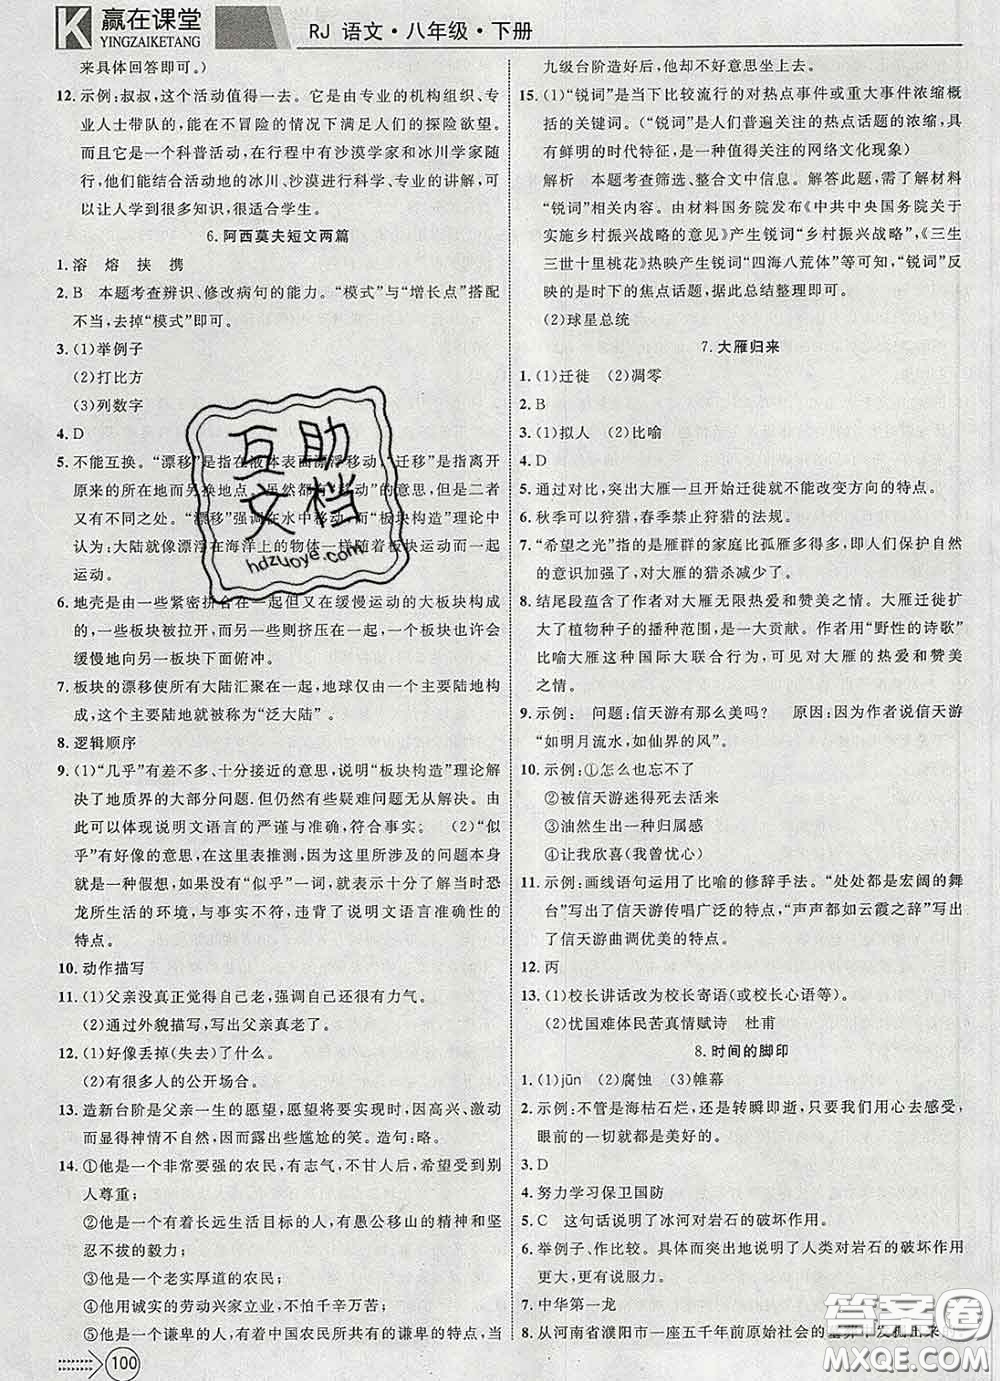 赢在课堂
YINGZAIKETANG
RJ 语文·八年级·下册
来具体回答即可。)
12. 示例:叔叔,这个活动值得一去。它是由专业的机构组织、专
业人士带队的,能在不冒险的情况下满足人们的探险欲望。
而且它是一个科普活动,在行程中有沙漠学家和冰川学家随
行,他们能结合活动地的冰川、沙漠进行科学、专业的讲解,可
以让人学到很多知识,很适合学生。
6. 阿西莫夫短文两篇
1. 溶 熔 挟 携
2. B 本题考查辨识、修改病句的能力。“模式”与“增长点”搭配
不当,去掉“模式”即可。
3. (1)举例子
(2)打比方
(3)列数字
4. D
5. 不能互换。“漂移”是指在液体表面漂浮移动,“迁移”是指离开
原来的所在地而另换地点。虽然都有“移动”的意思,但是二者
又有不同之处。“漂移”强调在水中移动,而“板块构造”理论中
认为:大陆就像漂浮在海洋上的物体一样随着板块运动而
运动。
6. 地壳是由一些紧密拼合在一起但又在缓慢运动的大板块构成
的,一些板块被拉开,而另一些则挤压在一起,一个板块也会
缓慢地向另一板块下面俯冲。
7. 板块的漂移使所有大陆汇聚在一起,地球仅由一个主要陆地构
成,这个主要陆地就被称为“泛大陆”。
8. 逻辑顺序
9. (1)“几乎”有差不多、十分接近的意思,说明“板块构造”理论解
决了地质界的大部分问题.但仍然有些疑难问题无从解决。由
此可以体现说明文语言的严谨与准确,符合事实。 (2)“似
乎”有好像的意思,在这里表推测,因为这里所涉及的问题本身
就是一种假想,如果没有“似乎”一词,就意味着当时就是恐
龙所生活的环境,与事实不符,违背了说明文语言准确性的
特点。
10. 动作描写
11. (1)父亲没真正觉得自己老,强调自己还很有力气。
(2)通过外貌描写,写出父亲真老了。
12. (1)好像丢掉(失去)了什么。
(2)有很多人的公开场合。
13. 造新台阶是父亲一生的愿望,愿望将要实现时,因高兴、激动
而显得神情不自然,因而露出些尴尬的笑。造句:略。
14. ①他是一个非常要强的农民,有志气,不甘人后,希望受到别
人尊重;
②他是一个有着长远生活目标的人,有愚公移山的精神和坚
忍不拔的毅力;
③他是一个老实厚道的农民;
④他用诚实的劳动兴家立业,不怕千辛万苦;
⑤他是一个谦卑的人,有着中国农民所共有的谦卑的特点,当
九级台阶造好后,他却不好意思坐上去。
15. (1)“锐词”是当下比较流行的对热点事件或重大事件浓缩概
括的关键词。(“锐词”是人们普遍关注的热点话题的浓缩,具
有鲜明的时代特征,是一种值得关注的网络文化现象)
解析 本题考查筛选、整合文中信息。解答此题,需了解材料
“锐词”相关内容。由材料国务院发布《中共中央国务院关于
实施乡村振兴战略的意见》产生锐词“乡村振兴战略”,《三生
三世十里桃花》热映产生锐词“四海八荒体”等可知,“锐词”反
映的是时下的焦点话题,据此总结整理即可。
(2)球星总统
7. 大雁归来
1. (1)迁徙 (2)凋零
2. B
3. (1)拟人 (2)比喻
4. D
5. 通过对比,突出大雁一旦开始迁徙就不能改变方向的特点。
6. 秋季可以狩猎,春季禁止狩猎的法规。
7. “希望之光”指的是雁群的家庭比孤雁多得多,即人们保护自然
的意识加强了,对大雁的猎杀减少了。
8. 结尾段蕴含了作者对大雁无限热爱和赞美之情。大雁迁徙扩
大了植物种子的播种范围,是一大贡献。作者用“野性的诗歌”
比喻大雁这种国际大联合行为,可见对大雁的热爱和赞美
之情。
9. 示例: 问题:信天游有那么美吗? 原因:因为作者说信天游
“如明月流水,如仙界的风”。
10. 示例:①怎么也忘不了
②被信天游迷得死去活来
③油然生出一种归属感
④让我欣喜(我曾忧心)
11. 示例:画线语句运用了比喻的修辞手法。“处处都是宏阔的舞
台”写出了信天游传唱广泛的特点,“声声都如云霞之辞”写出
了信天游曲调优美的特点。
12. 丙
13. (1)校长讲话改为校长寄语(或校长心语等)。
(2)忧国难体民苦真情赋诗 杜甫
8. 时间的脚印
1. (1)jūn (2)腐蚀 (3)帷幕
2. 示例:不管是海枯石烂,还是转瞬即逝,只要我们用心去感受,
眼前的一切就都是美好的。
3. D
4. 努力学习保卫国防
5. C 这句话说明了冰河对岩石的破坏作用。
6. 举例子、作比较。具体而突出地说明了人类对岩石的破坏作用
更大,更有说服力。
7. 中华第一龙
8. 从河南省濮阳市一座五千年前原始社会的墓葬中发掘出来
100
互助文档
hdzuoye.com
答案圈
MXQE.COM